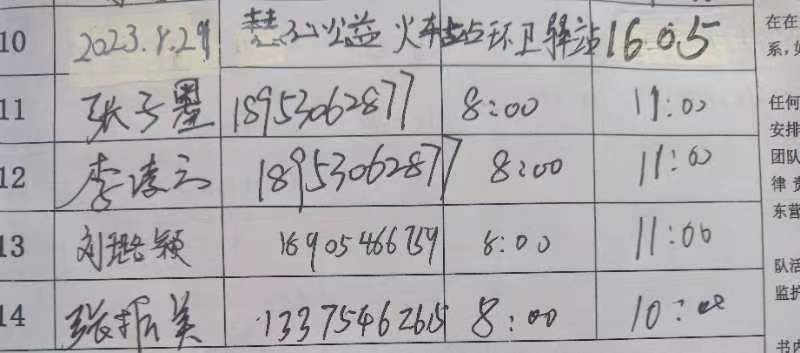 10 2023.8.29 慧心公益 火车站环卫驿站 1605
11 张子墨 18953062877 8:00 11:00
12 李凌云 18953062877 8:00 11:00
13 刘璐颖 8:00 11:00
14 张振美 8:00 10:00
在在
系,如
任何
安排
团队
律 责
东营
队活
监护
书内